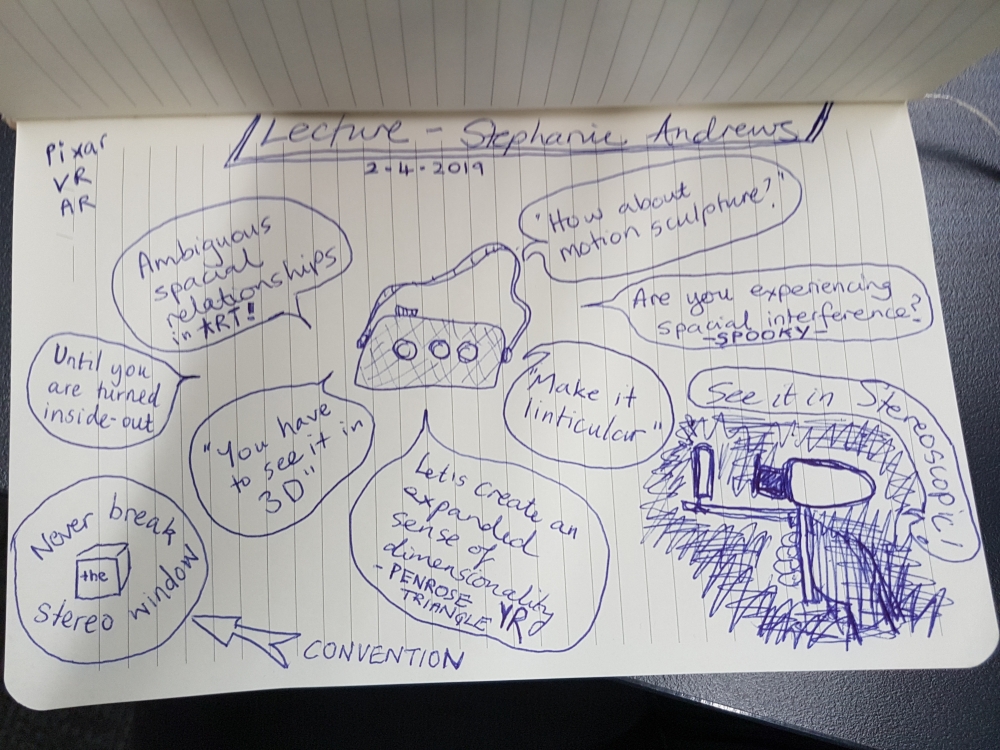 Lecture - Stephanie Andrews
2-4-2019
Pixar
VR
AR
Ambiguous
spacial
relationships
in ART!
"How about
motion sculpture?"
Are you experiencing
spacial interference?
-SPOOKY-
Until you
are turned
inside-out
"You have
to see it in
3D"
"Make it
linticular"
See it in Stereoscopic!
Let's create an
expanded
sense of
dimensionality
-PENROSE
TRIANGLE
Never break
the
stereo window
CONVENTION